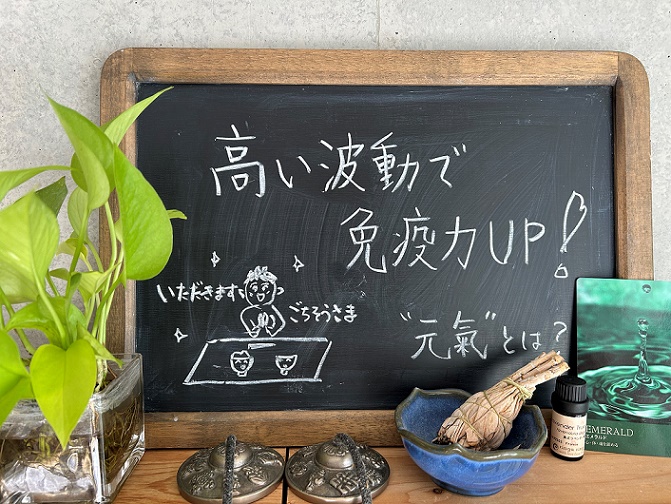 高い波動で
免疫力UP!
いただきます
ごちそうさま
"元氣"とは?
EMERALD